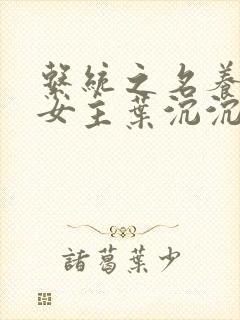 繫統之名養
女主葉沉沉
諸葛葉少